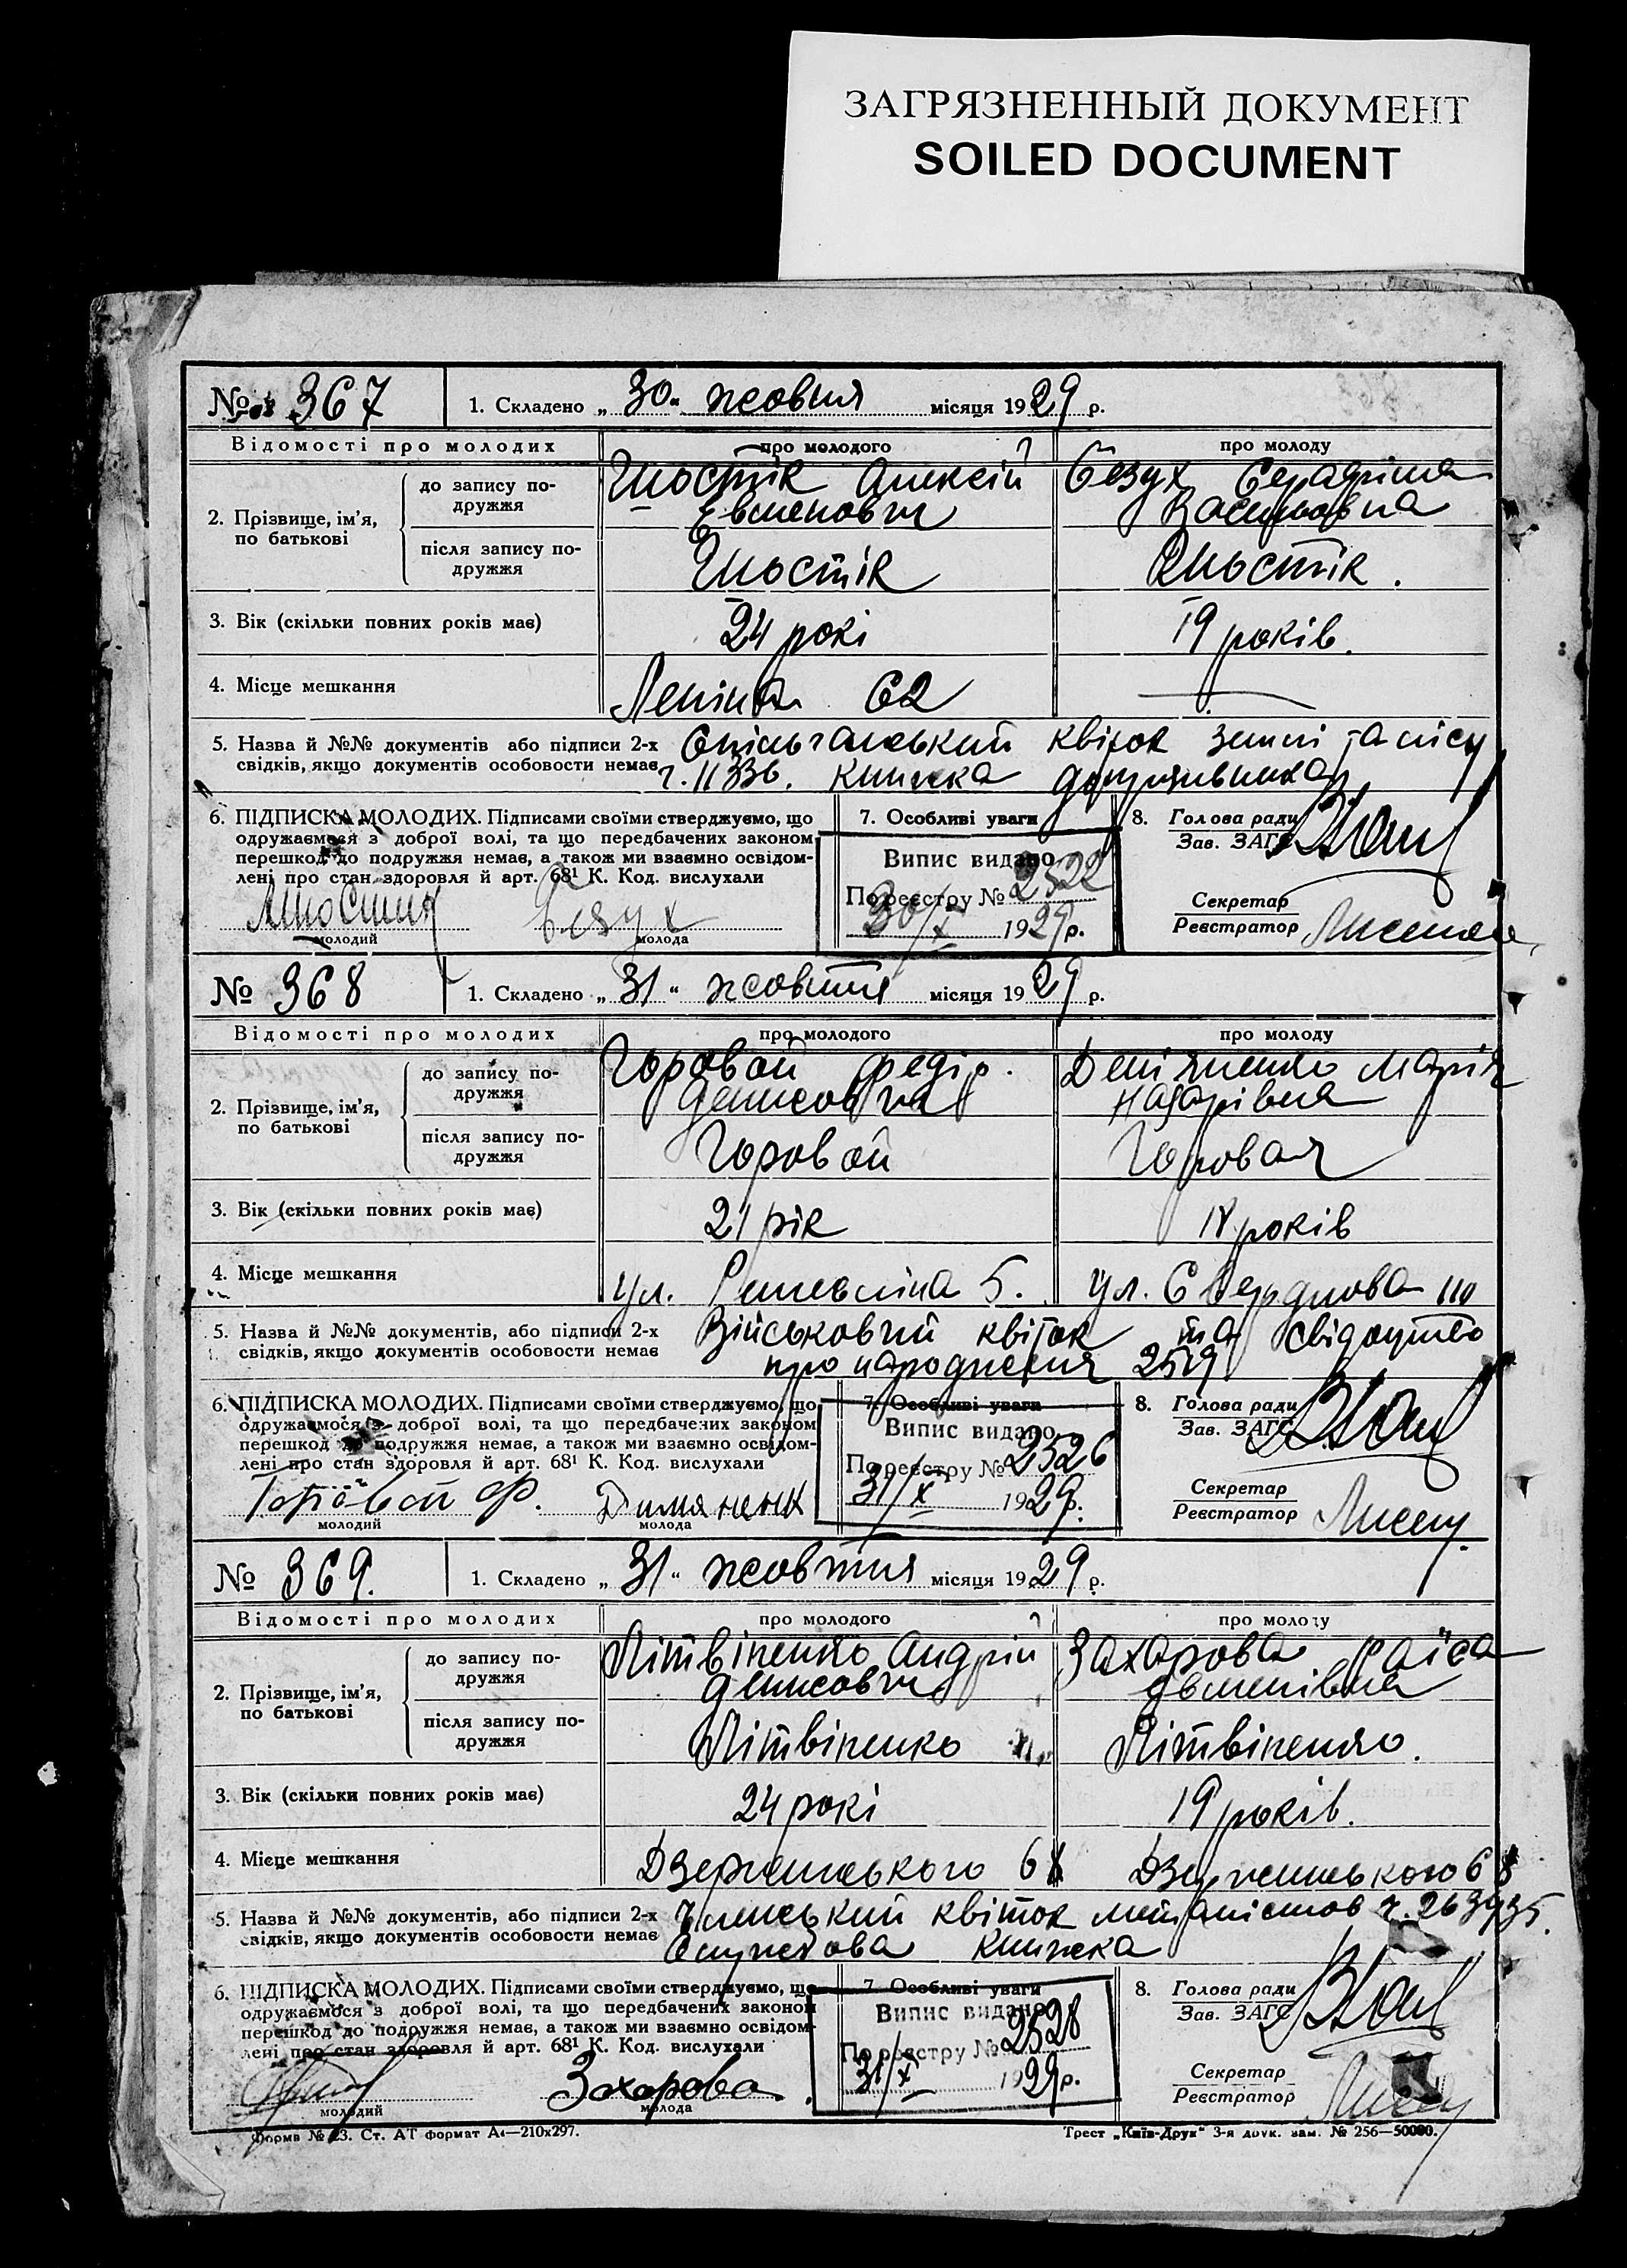 ЗАГРЯЗНЕННЫЙ ДОКУМЕНТ
SOILED DOCUMENT
№ 367
1. Складено „30“ жовтня місяця 1929 р.
Відомості про молодих
про молодого
про молоду
2. Прізвище, ім'я, по батькові
до запису подружжя
Шостік Алексій Євменович
Безух Серафіма Васильовна
після запису подружжя
Шостік
Шостік.
3. Вік (скільки повних років має)
24 рокі
19 років.
4. Місце мешкання
Леніна 62
—
5. Назва й №№ документів або підписи 2-х
свідків, якщо документів особовости немає
Спільчанський квіток землі та лісу
ч. 11336. книжка
6. ПІДПИСКА МОЛОДИХ. Підписами своїми стверджуємо, що
одружаємося з доброї волі, та що передбачених законом
перешкод до подружжя немає, а також ми взаємно освідом-
лені про стан здоровля й арт. 68¹ К. Код. вислухали
молодий
Безух
молода
7. Особливі уваги
Випис видано
По реєстру № 2522
30/X 1929 р.
8. Голова ради
Зав. ЗАГС
Секретар
Реєстратор
№ 368
1. Складено „31“ жовтня місяця 1929 р.
Відомості про молодих
про молодого
про молоду
2. Прізвище, ім'я,
по батькові
до запису по-
дружжя
Горовой Федір.
Денисович
Демʼяненко Марія
Назарівна
після запису по-
дружжя
Горовой
Горовая
3. Вік (скільки повних років має)
21 рік
18 років
4. Місце мешкання
ул. 5.
ул. Свердлова 110
5. Назва й №№ документів, або підписи 2-х
свідків, якщо документів особовости немає
Військовий квіток та свідоцтво
про народження 2519
6. ПІДПИСКА МОЛОДИХ. Підписами своїми стверджуємо, що
одружаємося з доброї волі, та що передбачених законом
перешкод до подружжя немає, а також ми взаємно освідом-
лені про стан здоровля й арт. 68¹ К. Код. вислухали
Горовой Ф.
молодий
Димяненк
молода
7. Особливі уваги
Випис видано
По реєстру № 2526
31/X 1929 р.
8. Голова ради
Зав. ЗАГС
Секретар
Реєстратор
№ 369.
1. Складено „31“ жовтня місяця 1929 р.
Відомості про молодих
про молодого
про молоду
2. Прізвище, ім'я,
по батькові
до запису по-
дружжя
Літвіненко Андрій
Денисович
Захарова Раїса
Євменівна
після запису по-
дружжя
Літвіненко
Літвіненко.
3. Вік (скільки повних років має)
24 рокі
19 років.
4. Місце мешкання
Дзержинського 68
Дзержинського 68
5. Назва й №№ документів, або підписи 2-х
свідків, якщо документів особовости немає
Членський квіток металістов ч. 263935.
книжка
6. ПІДПИСКА МОЛОДИХ. Підписами своїми стверджуємо, що
одружаємося з доброї волі, та що передбачених законом
перешкод до подружжя немає, а також ми взаємно освідом-
лені про стан здоровля й арт. 68¹ К. Код. вислухали
молодий
Захарова
молода
7. Особливі уваги
Випис видано
По реєстру № 2528
31/X 1929 р.
8. Голова ради
Зав. ЗАГС
Секретар
Реєстратор
Форма № 23. Ст. АТ формат А4—210х297.
Трест „Київ-Друк“ 3-я друк. зам. № 256—50000.